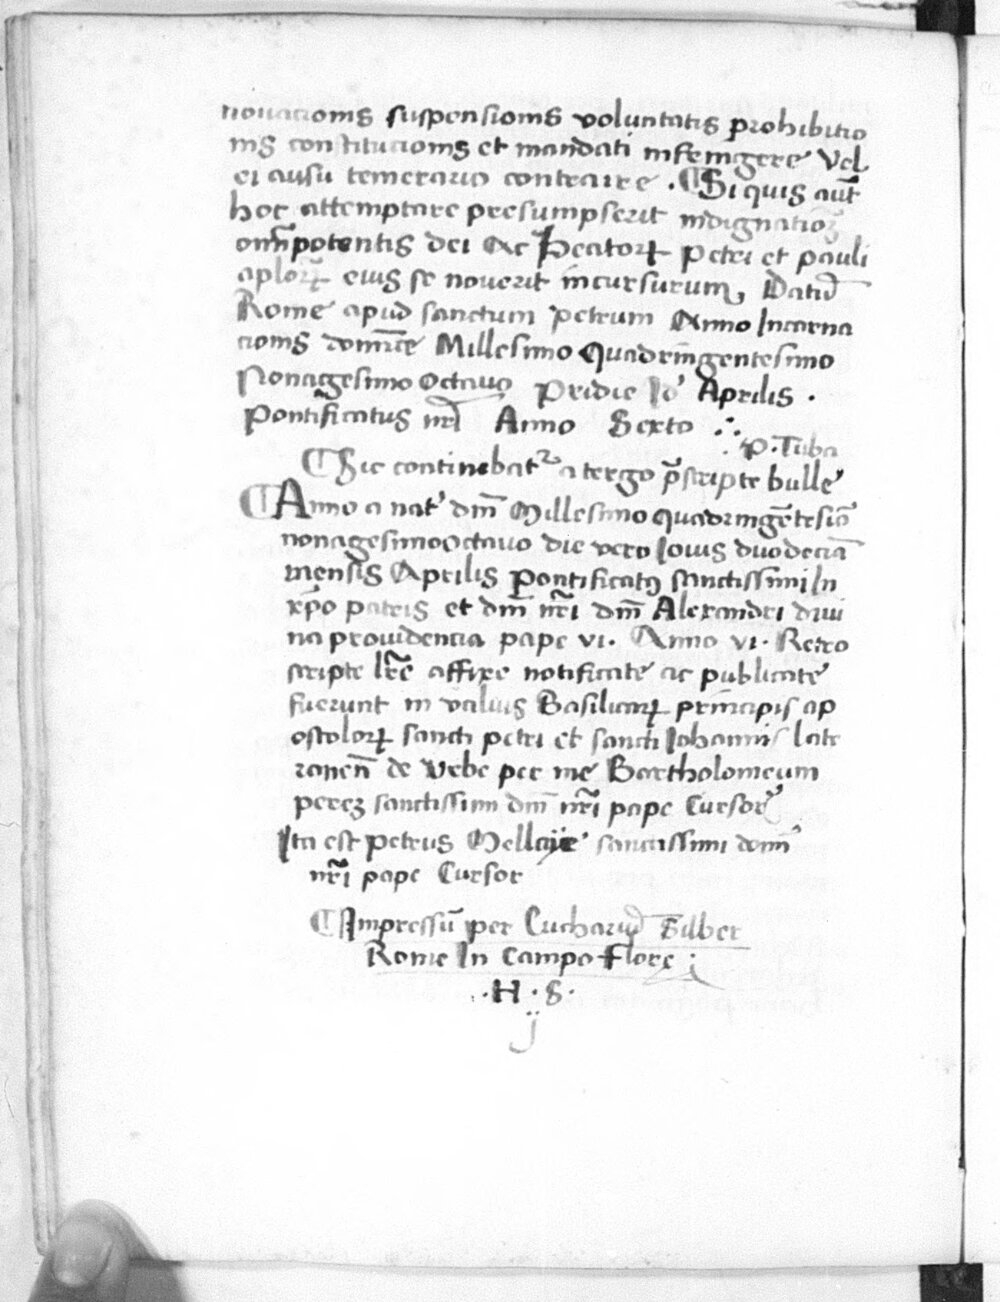 nouacionis suspensionis voluntatis prohibitio
nis constitucionis et mandati infringere Vel
ei ausu temerario contraire . ¶ Si quis aūt
hoc attemptare presumpserit indignationē
omīpotentis dei Ac Beatorꝝ Petri et pauli
aplorꝝ eius se nouerit incursurum, Datū
Rome apud sanctum petrum Anno Incarna
cionis dominice Millesimo Quadringentesimo
Nonagesimo Octauo Pridie Id' Aprilis .
Pontificatus nr̄i Anno Sexto ∴
P. Tuba
¶ Sic continebatr a tergo p̄scripte bulle
¶ Anno a nat' dn̄i Millesimo quadringētesiō
nonagesimooctauo die vero Iouis duodecīa
mensis Aprilis Pontificatꝰ sanctissimi In
xp̄o patris et dn̄i nr̄i dn̄i Alexandri diui
na prouidencia pape vi. Anno vi. Retro
scripte lr̄e affixe notificate ac publicate
fuerunt in valuis Basilicarꝝ principis ap
ostolorꝝ sancti petri et sancti Iohannis late
ranen̄ de Vrbe per me Bartholomeum
perez sanctissimi dn̄i nr̄i pape Cursorē
Ita est petrus Mellaye sanctissimi domi
nr̄i pape Cursor
¶ Impressū per Eucharuɫ Silber
Rome In Campo Flore ;
. H . S .
j